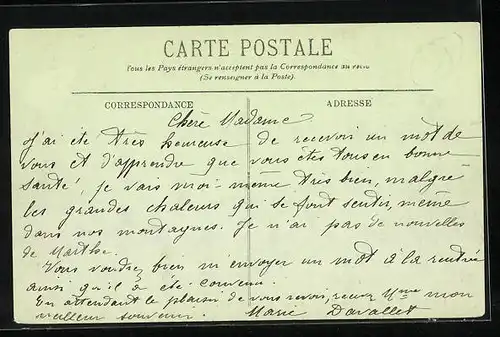 CARTE POSTALE
Tous les Pays étrangers n'acceptent pas la Correspondance au recto
(Se renseigner à la Poste).
CORRESPONDANCE ADRESSE
Chère Madame
J'ai été très heureuse de recevoir un mot de
vous et d'apprendre que vous êtes tous en bonne
santé, je vais moi-même très bien, malgré
les grandes chaleurs qui se font sentir, même
dans nos montagnes. Je n'ai pas de nouvelles
de Marthe.
Vous voudrez bien m'envoyer un mot à la rentrée
ainsi qu'il a été convenu.
En attendant le plaisir de vous revoir, recevez Mme mon
meilleur souvenir. Marie Davallet